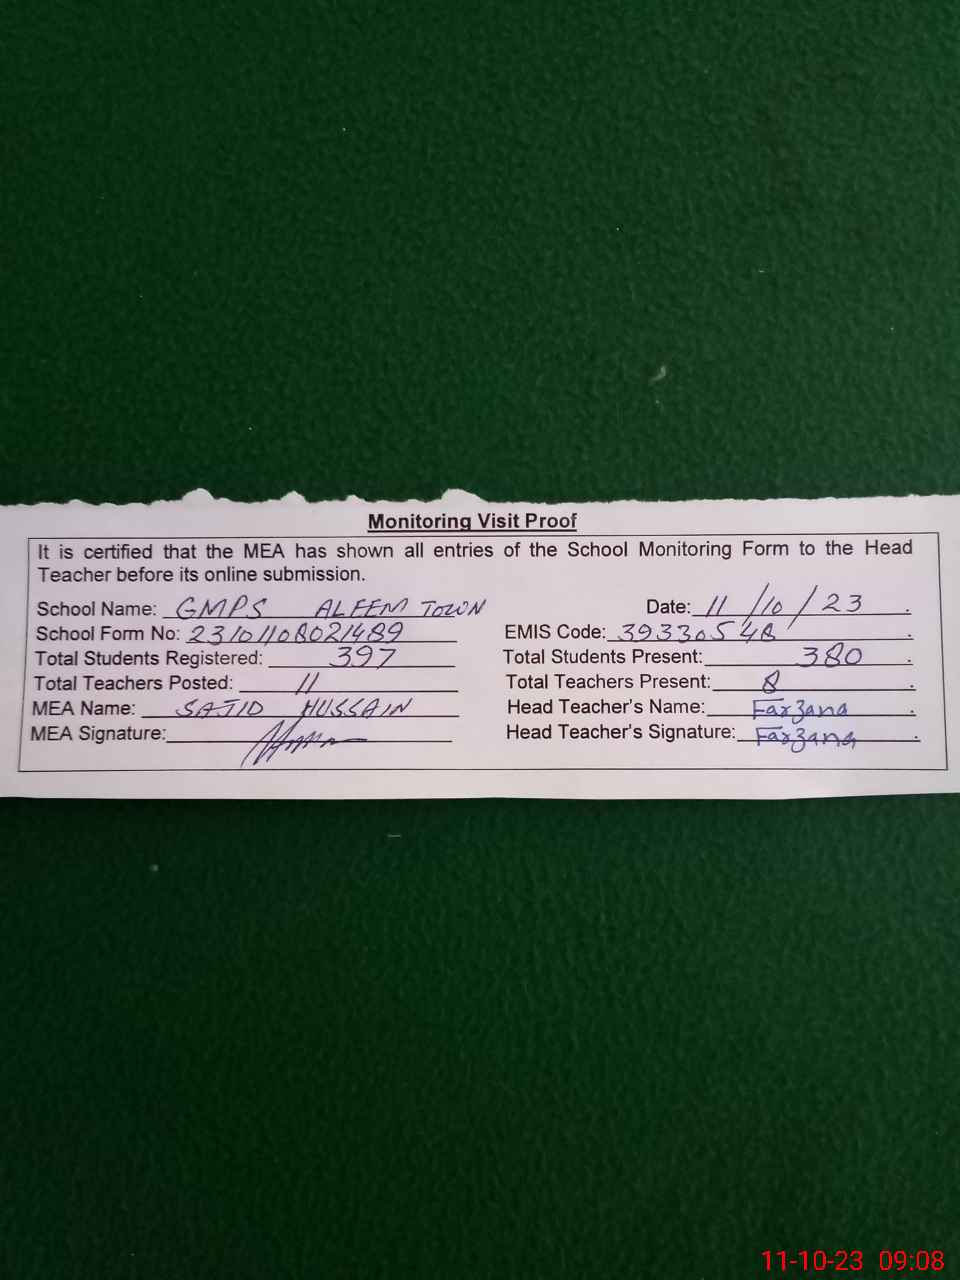 Monitoring Visit Proof
It is certified that the MEA has shown all entries of the School Monitoring Form to the Head
Teacher before its online submission.
School Name: GMPS ALEEM TOWN Date: 11/10/23
School Form No: 23101108021489 EMIS Code: 39330548
Total Students Registered: 397 Total Students Present: 380
Total Teachers Posted: 11 Total Teachers Present: 8
MEA Name: SAJID HUSSAIN Head Teacher's Name: Farzana
MEA Signature: Head Teacher's Signature: Farzana
11-10-23 09:08